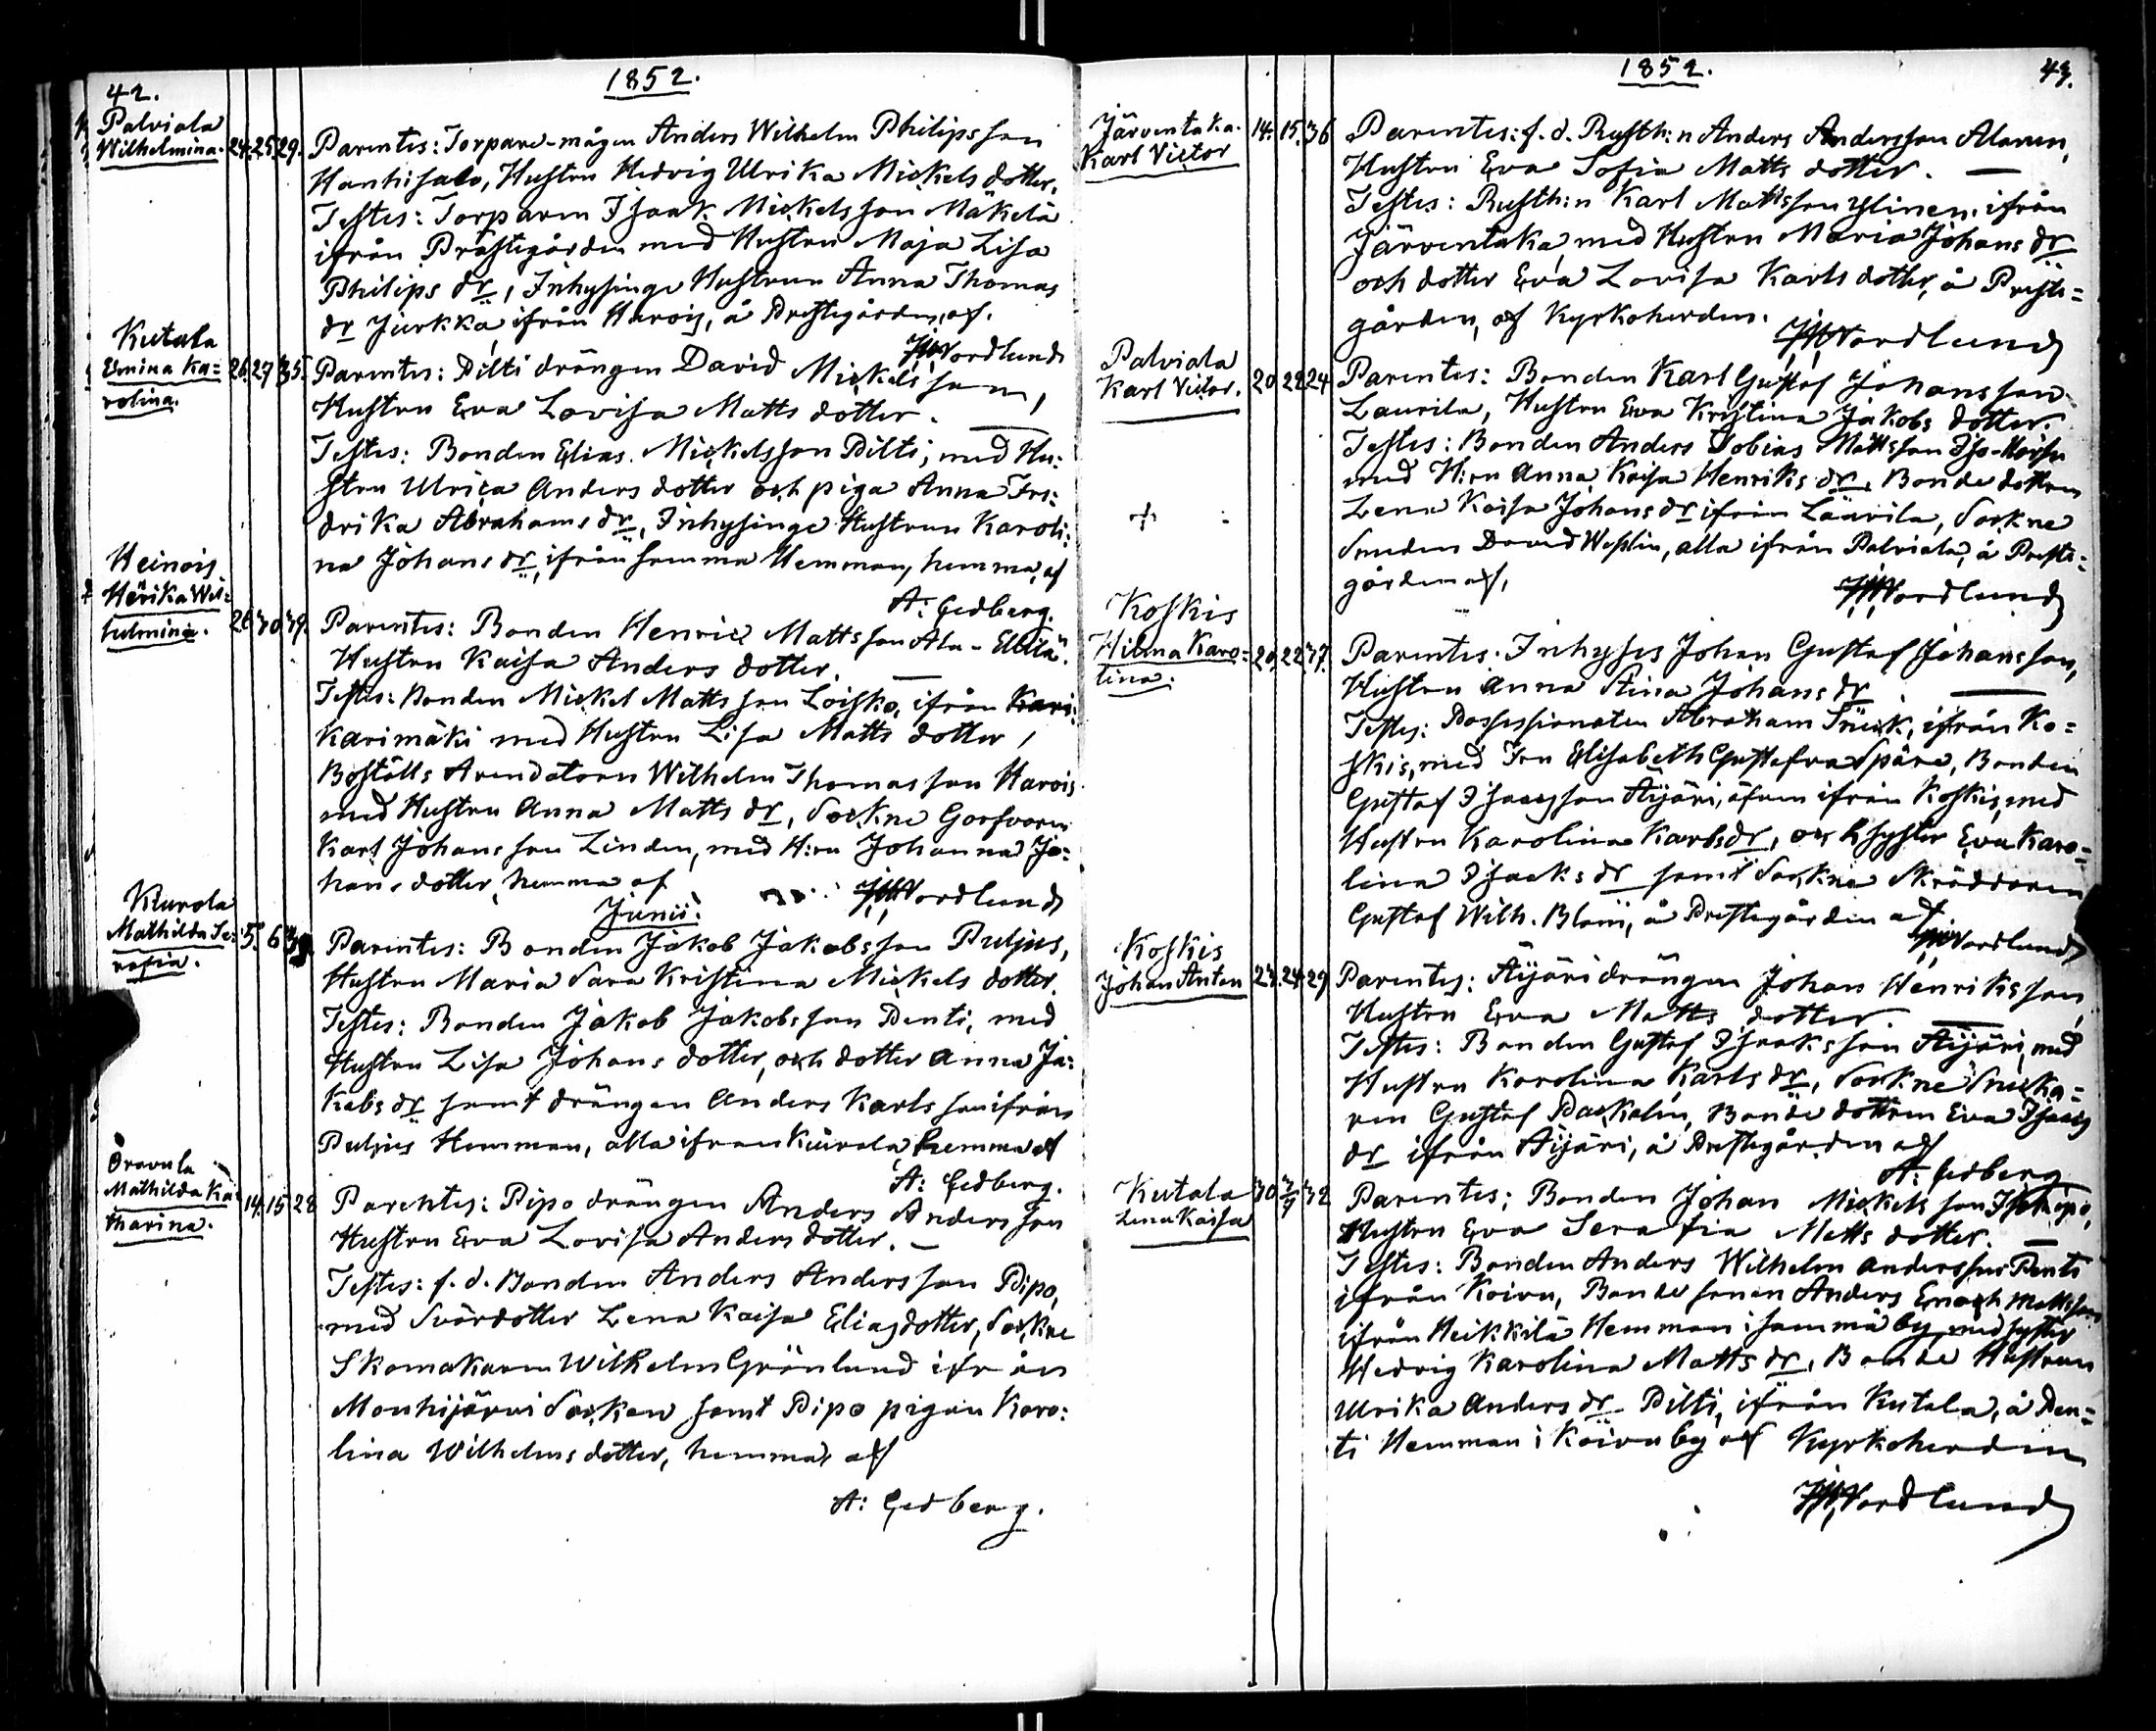 42.
1852.
Palviala
Wilhelmina. 24. 25. 29.
Parentes: Torpare-mågen Anders Wilhelm Philipsson
Hanhisalo, Hustru Hedvig Ulrika Mickels dotter.
Testes: Torparen Isaak Mickelsson Mäkelä
ifrån Prästegården med Hustru Maja Lisa
Philips dr, Inhysinge Hustrun Anna Thomas
dr Jurkka, ifrån Harois, å Prestegården, af.
Nordlund
Kutala
Emina Ka=
rolina. 26. 27. 35.
Parentes: Pilti drängen David Mickelsson,
Hustru Eva Lovisa Matts dotter.
Testes: Bonden Elias Mickelsson Pilti, med Hu:
stru Ulrica Anders dotter och piga Anna Fre:
drika Abrahams dr, Inhysinge Hustrun Karoli:
na Johans dr, ifrån samma Hemman, hemma, af
A: Gedberg.
Heinois
Herika Wil=
helmina. 26. 30. 39.
Parentes: Bonden Henric Mattsson Ala-Ellilä.
Hustru Kaisa Anders dotter.
Testes: Bonden Mickel Mattsson Loisko, ifrån Kari:
Karimäki med Hustru Lisa Matts dotter,
Boställs Arendatorn Wilhelm Thomasson Harois
med Hustru Anna Matts dr, Sockne Garfvaren
Karl Johansson Linden, med H:ru Johanna Jo:
hans dotter, hemma af
Nordlund
Junii.
Kiurola
Mathilda Se:
rafia. 5. 6. 39.
Parentes: Bonden Jakob Jakobsson Puljus,
Hustru Maria Sara Kristina Mickels dotter.
Testes: Bonden Jakob Jakobsson Penti, med
Hustru Lisa Johans dotter, och dotter Anna Ja:
kobs dr samt drängen Anders Karlsson ifrån
Puljus Hemman, alla ifrån Kiurola, hemma af
A: Gedberg.
Oravula
Mathilda Ka=
tharina. 14. 15. 28
Parentes: Pipo drängen Anders Andersson
Hustru Eva Lovisa Anders dotter.
Testes: f. d. Bonden Anders Andersson Pipo,
med Svärdotter Lena Kaisa Eliasdotter, Sockne
Skomakaren Wilhelm Grönlund ifrån
Mouhijärvi Socken samt Pipo pigan Karo:
lina Wilhelms dotter, hemma, af
A: Gedberg.
1852.
43.
Järventaka.
Karl Victor 14. 15. 36
Parentes: f. d. Rusth:n Anders Andersson Alanen,
Hustru Eva Sofia Matts dotter.
Testes: Rusth:n Karl Mattsson Ylinen, ifrån
Järventaka, med Hustru Maria Johans dr
och dotter Eva Lovisa Karls dotter, å Preste=
gården, af Kyrkoherden.
Nordlund
Palviala
Karl Victor. 20 22 24
Parentes: Bonden Karl Gustaf Johansson
Laurila, Hustru Eva Kristina Jakobs dotter.
Testes: Bonden Anders Tobias Mattsson
med H:ru Anna Kaisa Henriks dr, Bonde dottren
Lena Kaisa Johans dr ifrån Laurila, Sockne
Smeden David Weslin, alla ifrån Palviala, å Preste=
gården af,
Nordlund
Koskis
Hilma Karo=
lina. 20. 22. 37.
Parentes: Inhyses Johan Gustaf Johansson,
Hustru Anna Stina Johans dr.
Testes: Possessionaten Abraham ifrån Ko=
skis, med Fru Elisabeth Gustafva Spåre, Bonden
Gustaf Isaacsson Äijäri, äfven ifrån Koskis, med
Hustru Karolina Karls dr, och Syster Eva Karo=
lina Isaaks dr samt Sockne Skräddaren
Gustaf Wilh. å Prestegården af.
Nordlund
Koskis
Johan Anton 23. 24. 29
Parentes: Äijäri drängen Johan Henriksson,
Hustru Eva Matts dotter.
Testes: Bonden Gustaf Isaaksson Äijäri, med
Hustru Karolina Karls dr, Sockne Snicka=
ren Gustaf Packalen, Bonde dottren Eva Isaacs
dr ifrån Äijäri, å Prestegården af
A: Gedberg
Kutala
Lena Kaisa 30 32
Parentes: Bonden Johan Mickelsson
Hustru Eva Serafia Matts dotter.
Testes: Bonden Anders Wilhelm Andersson Penti
ifrån Koivu, Bonde sonen Anders Enoch Mattsson
ifrån Heikkilä Hemman i samma by, med syster
Hedvig Karolina Matts dr, Bonde Hustrun
Ulrika Anders dr Pilti, ifrån Kutala, å Pen=
ti Hemman i Koivu by af Kyrkoherden
Nordlund